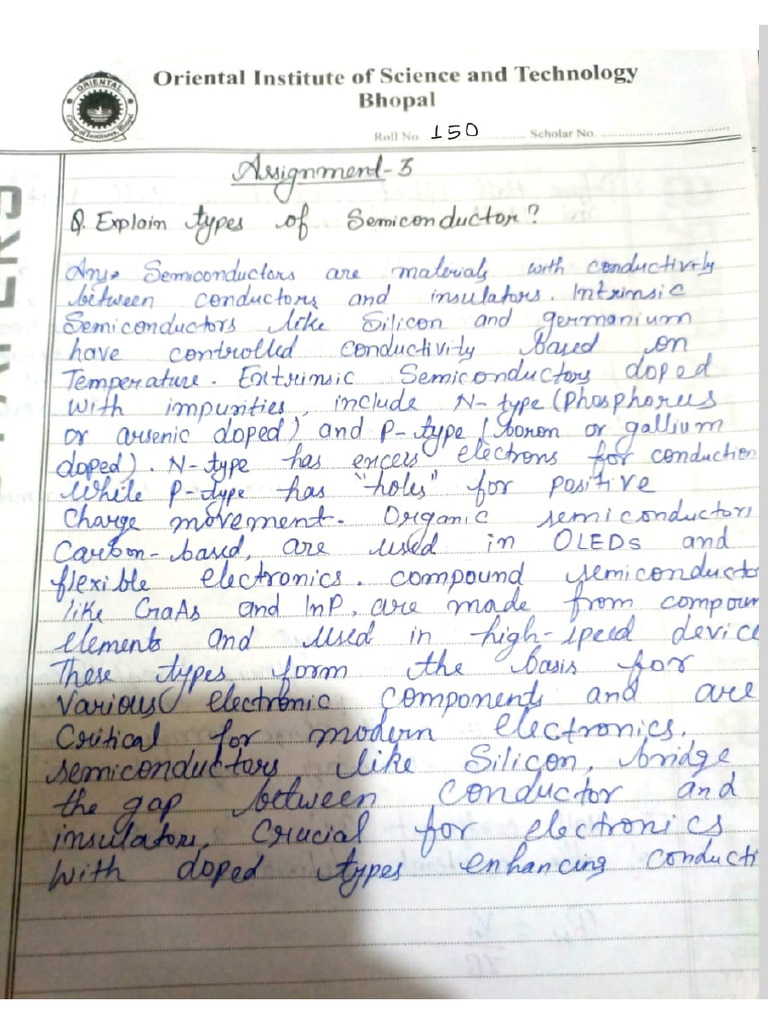 Oriental Institute of Science and Technology
Bhopal
Roll No. 150 Scholar No.
ORIENTAL
Assignment-3
Q. Explain types of Semiconductor?
Ans. Semiconductors are materials with conductivity
between conductors and insulators. Intrinsic
Semiconductors like Silicon and germanium
have controlled conductivity based on
Temperature. Extrinsic Semiconductors doped
with impurities, include N-type (Phosphorus
or arsenic doped) and P-type (boron or gallium
doped). N-type has excess electrons for conduction
While P-type has "holes" for positive
Charge movement. Organic semiconductors
Carbon-based, are used in OLEDs and
flexible electronics. compound semiconducto
like GaAs and InP, are made from compoun
elements and used in high-speed device
These types form the basis for
Various electronic components and are
Critical for modern electronics.
semiconductors like Silicon, bridge
the gap between conductor and
insulators, Crucial for electronics
With doped types enhancing conducti